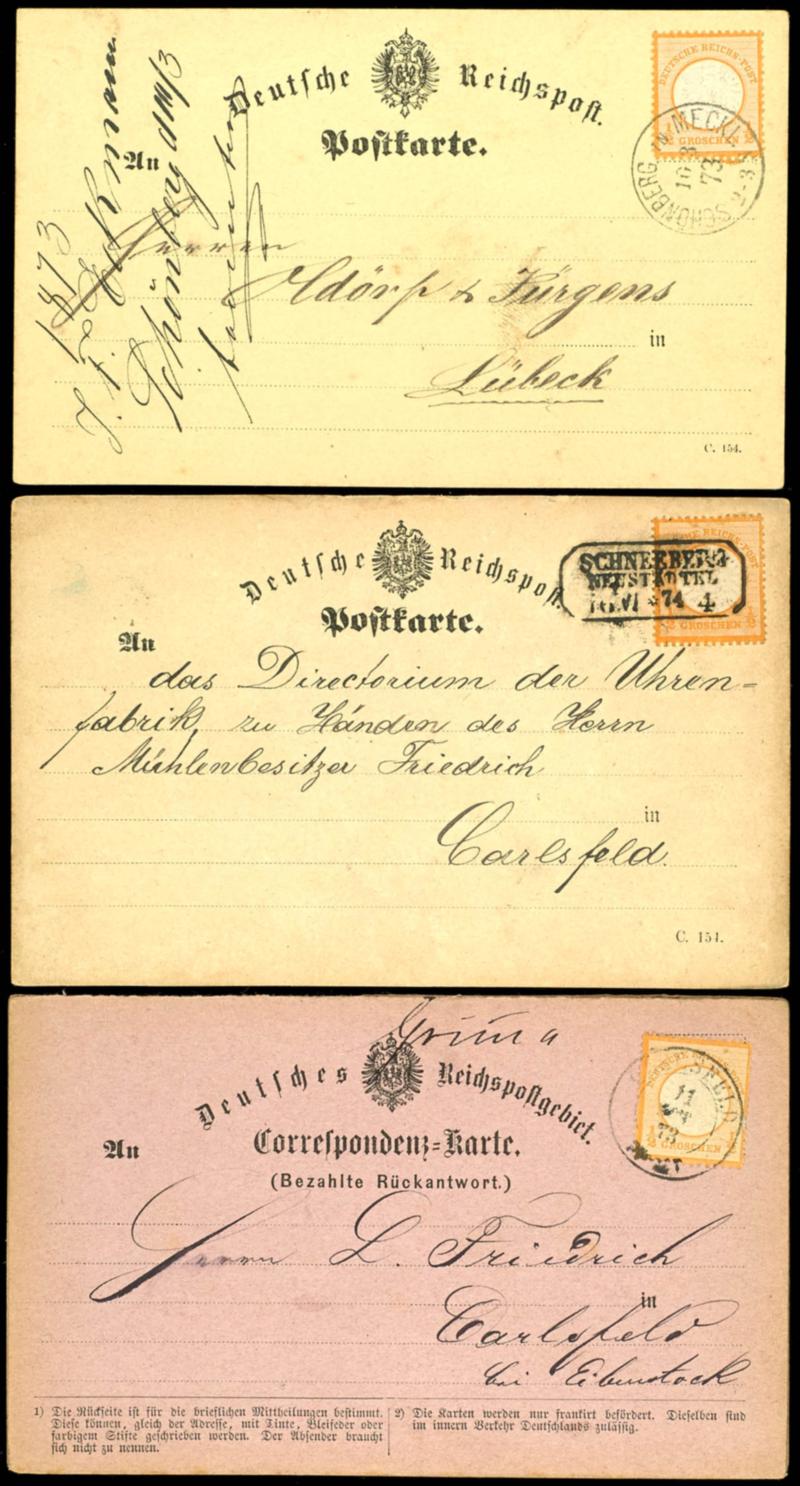 Deutsche Reichspost.
Postkarte.
An
DEUTSCHE REICHS-POST
½ GROSCHEN ½
SCHÖNBERG IN MECKL.
10 3
73
2-3
1873
Schönberg
Herren
& Jürgens
in
Lübeck
C. 154.
Deutsche Reichspost.
Postkarte.
An
SCHNEEBERG-
NEUSTÄDTEL
VI 74 4
GROSCHEN ½
das Directorium der Uhren-
fabrik, zu Händen des Herrn
Mühlenbesitzer Friedrich
in
Carlsfeld.
C. 154.
Grima
Deutsches Reichspostgebiet.
Correspondenz-Karte.
(Bezahlte Rückantwort.)
An
½ GROSCHEN
11
73
Herrn L. Friedrich
in
Carlsfeld
bei Eibenstock
1) Die Rückseite ist für die brieflichen Mittheilungen bestimmt.
Diese können, gleich der Adresse, mit Tinte, Bleifeder oder
farbigem Stifte geschrieben werden. Der Absender braucht
sich nicht zu nennen.
2) Die Karten werden nur frankirt befördert. Dieselben sind
im innern Verkehr Deutschlands zulässig.